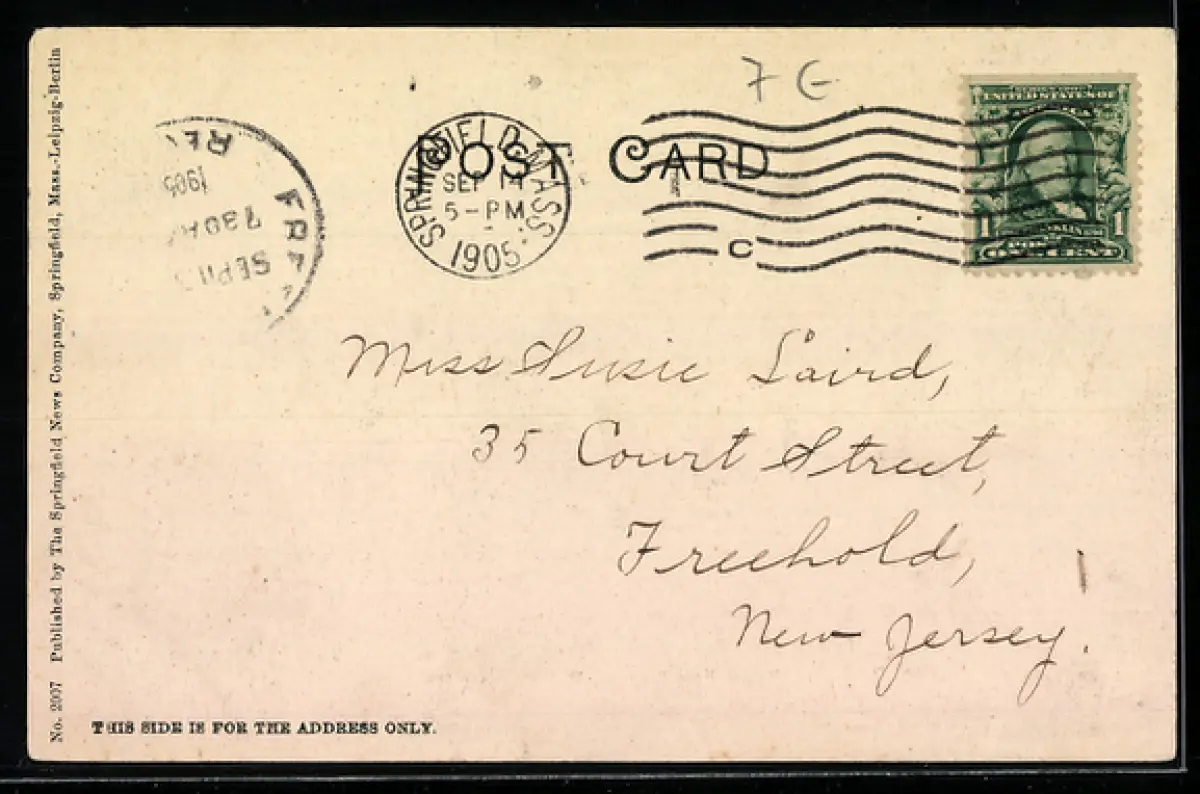 7 G
POST CARD
SPRINGFIELD, MASS.
SEP 14
5-PM
1905
C
UNITED STATES OF
AMERICA
1 FRANKLIN 1
ONE CENT
RE
1905
730A
SEP 1
FR
Miss Susie Laird,
35 Court Street,
Freehold,
New Jersey.
THIS SIDE IS FOR THE ADDRESS ONLY.
No. 2007 Published by The Springfield News Company, Springfield, Mass.-Leipzig-Berlin